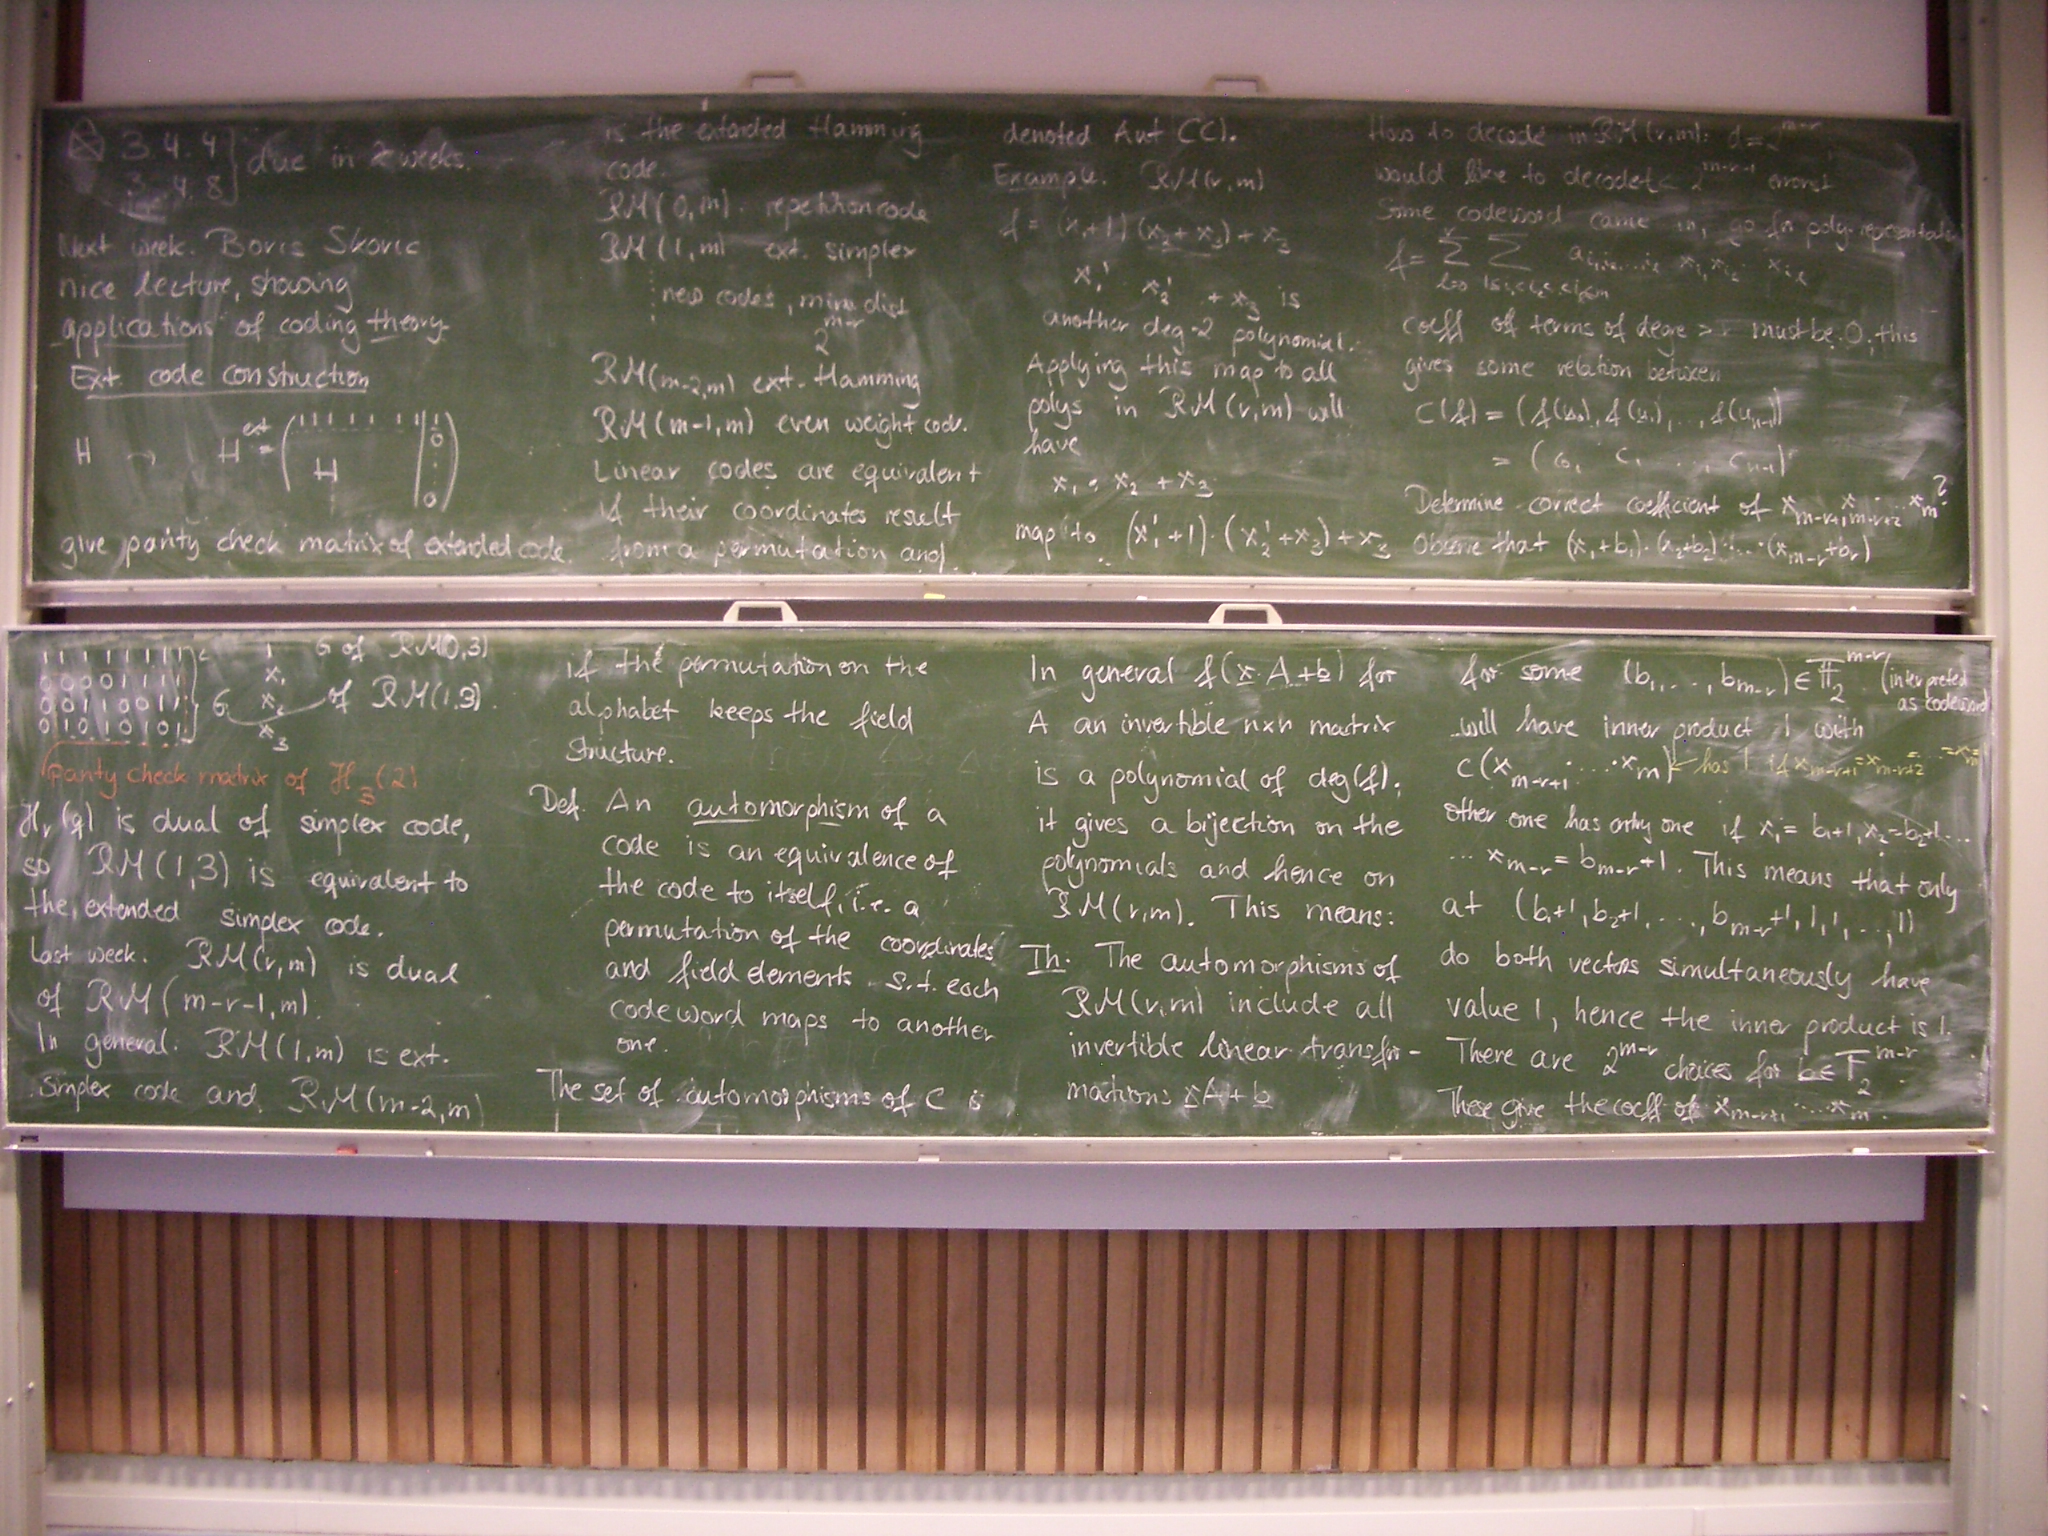 3.4.4
3.4.8 } due in 2 weeks.
Next week. Boris Skoric
nice lecture, showing
applications of coding theory
Ext. code construction
H → H^ext = ( 1 1 1 1 1 1 1 | 1
H | 0
⋮
0 )
give parity check matrix of extended code.
1 1 1 1 1 1 1 1 1 G of RM(0,3)
0 0 0 0 1 1 1 1 x_1
0 0 1 1 0 0 1 1 G x_2 of RM(1,3).
0 1 0 1 0 1 0 1 x_3
parity check matrix of H_3(2)
H_r(q) is dual of simplex code,
so RM(1,3) is equivalent to
the extended simplex code.
Last week. RM(r,m) is dual
of RM(m-r-1,m).
In general. RM(1,m) is ext.
simplex code and RM(m-2,m)
is the extended Hamming
code.
RM(0,m). repetition code
RM(1,m) ext. simplex
⋮ new codes, min dist
2^{m-r}
RM(m-2,m) ext. Hamming
RM(m-1,m) even weight code.
Linear codes are equivalent
if their coordinates result
from a permutation and
if the permutation on the
alphabet keeps the field
structure.
Def. An automorphism of a
code is an equivalence of
the code to itself, i.e. a
permutation of the coordinates
and field elements s.t. each
codeword maps to another
one.
The set of automorphisms of C is
denoted Aut(C).
Example. RM(r,m)
f = (x_1+1)(x_2+x_3)+x_3
x_1' · x_2' + x_3 is
another deg-2 polynomial.
Applying this map to all
polys in RM(r,m) will
have
x_1 · x_2 + x_3
map to (x_1'+1)·(x_2'+x_3)+x_3
In general f(x·A+b) for
A an invertible n×n matrix
is a polynomial of deg(f);
it gives a bijection on the
polynomials and hence on
RM(r,m). This means:
Th. The automorphisms of
RM(r,m) include all
invertible linear transfor-
mations xA+b
How to decode in RM(r,m): d=2^{m-r}
would like to decode t< 2^{m-r-1} errors
Some codeword came in, go for poly. representation
f = Σ Σ a_{i_1 i_2 ... i_l} x_{i_1} x_{i_2} ... x_{i_l}
coeff of terms of degree > r must be 0, this
gives some relation between
c(f) = (f(u_0), f(u_1), ..., f(u_{n-1}))
= (c_0, c_1, ..., c_{n-1})
Determine correct coefficient of x_{m-r+1} x_{m-r+2} ... x_m?
Observe that (x_1+b_1)·(x_2+b_2)·...·(x_{m-r}+b_r)
for some (b_1, ..., b_{m-r}) ∈ F_2^{m-r} (interpreted
as codeword
will have inner product 1 with
c(x_{m-r+1} ... x_m) ← has 1 if x_{m-r+1}=x_{m-r+2}= ... =x_m=
other one has only one if x_1=b_1+1, x_2=b_2+1...
... x_{m-r}=b_{m-r}+1. This means that only
at (b_1+1, b_2+1, ..., b_{m-r}+1, 1, 1, ..., 1)
do both vectors simultaneously have
value 1, hence the inner product is 1.
There are 2^{m-r} choices for b∈F_2^{m-r}.
These give the coeff of x_{m-r+1} ... x_m.